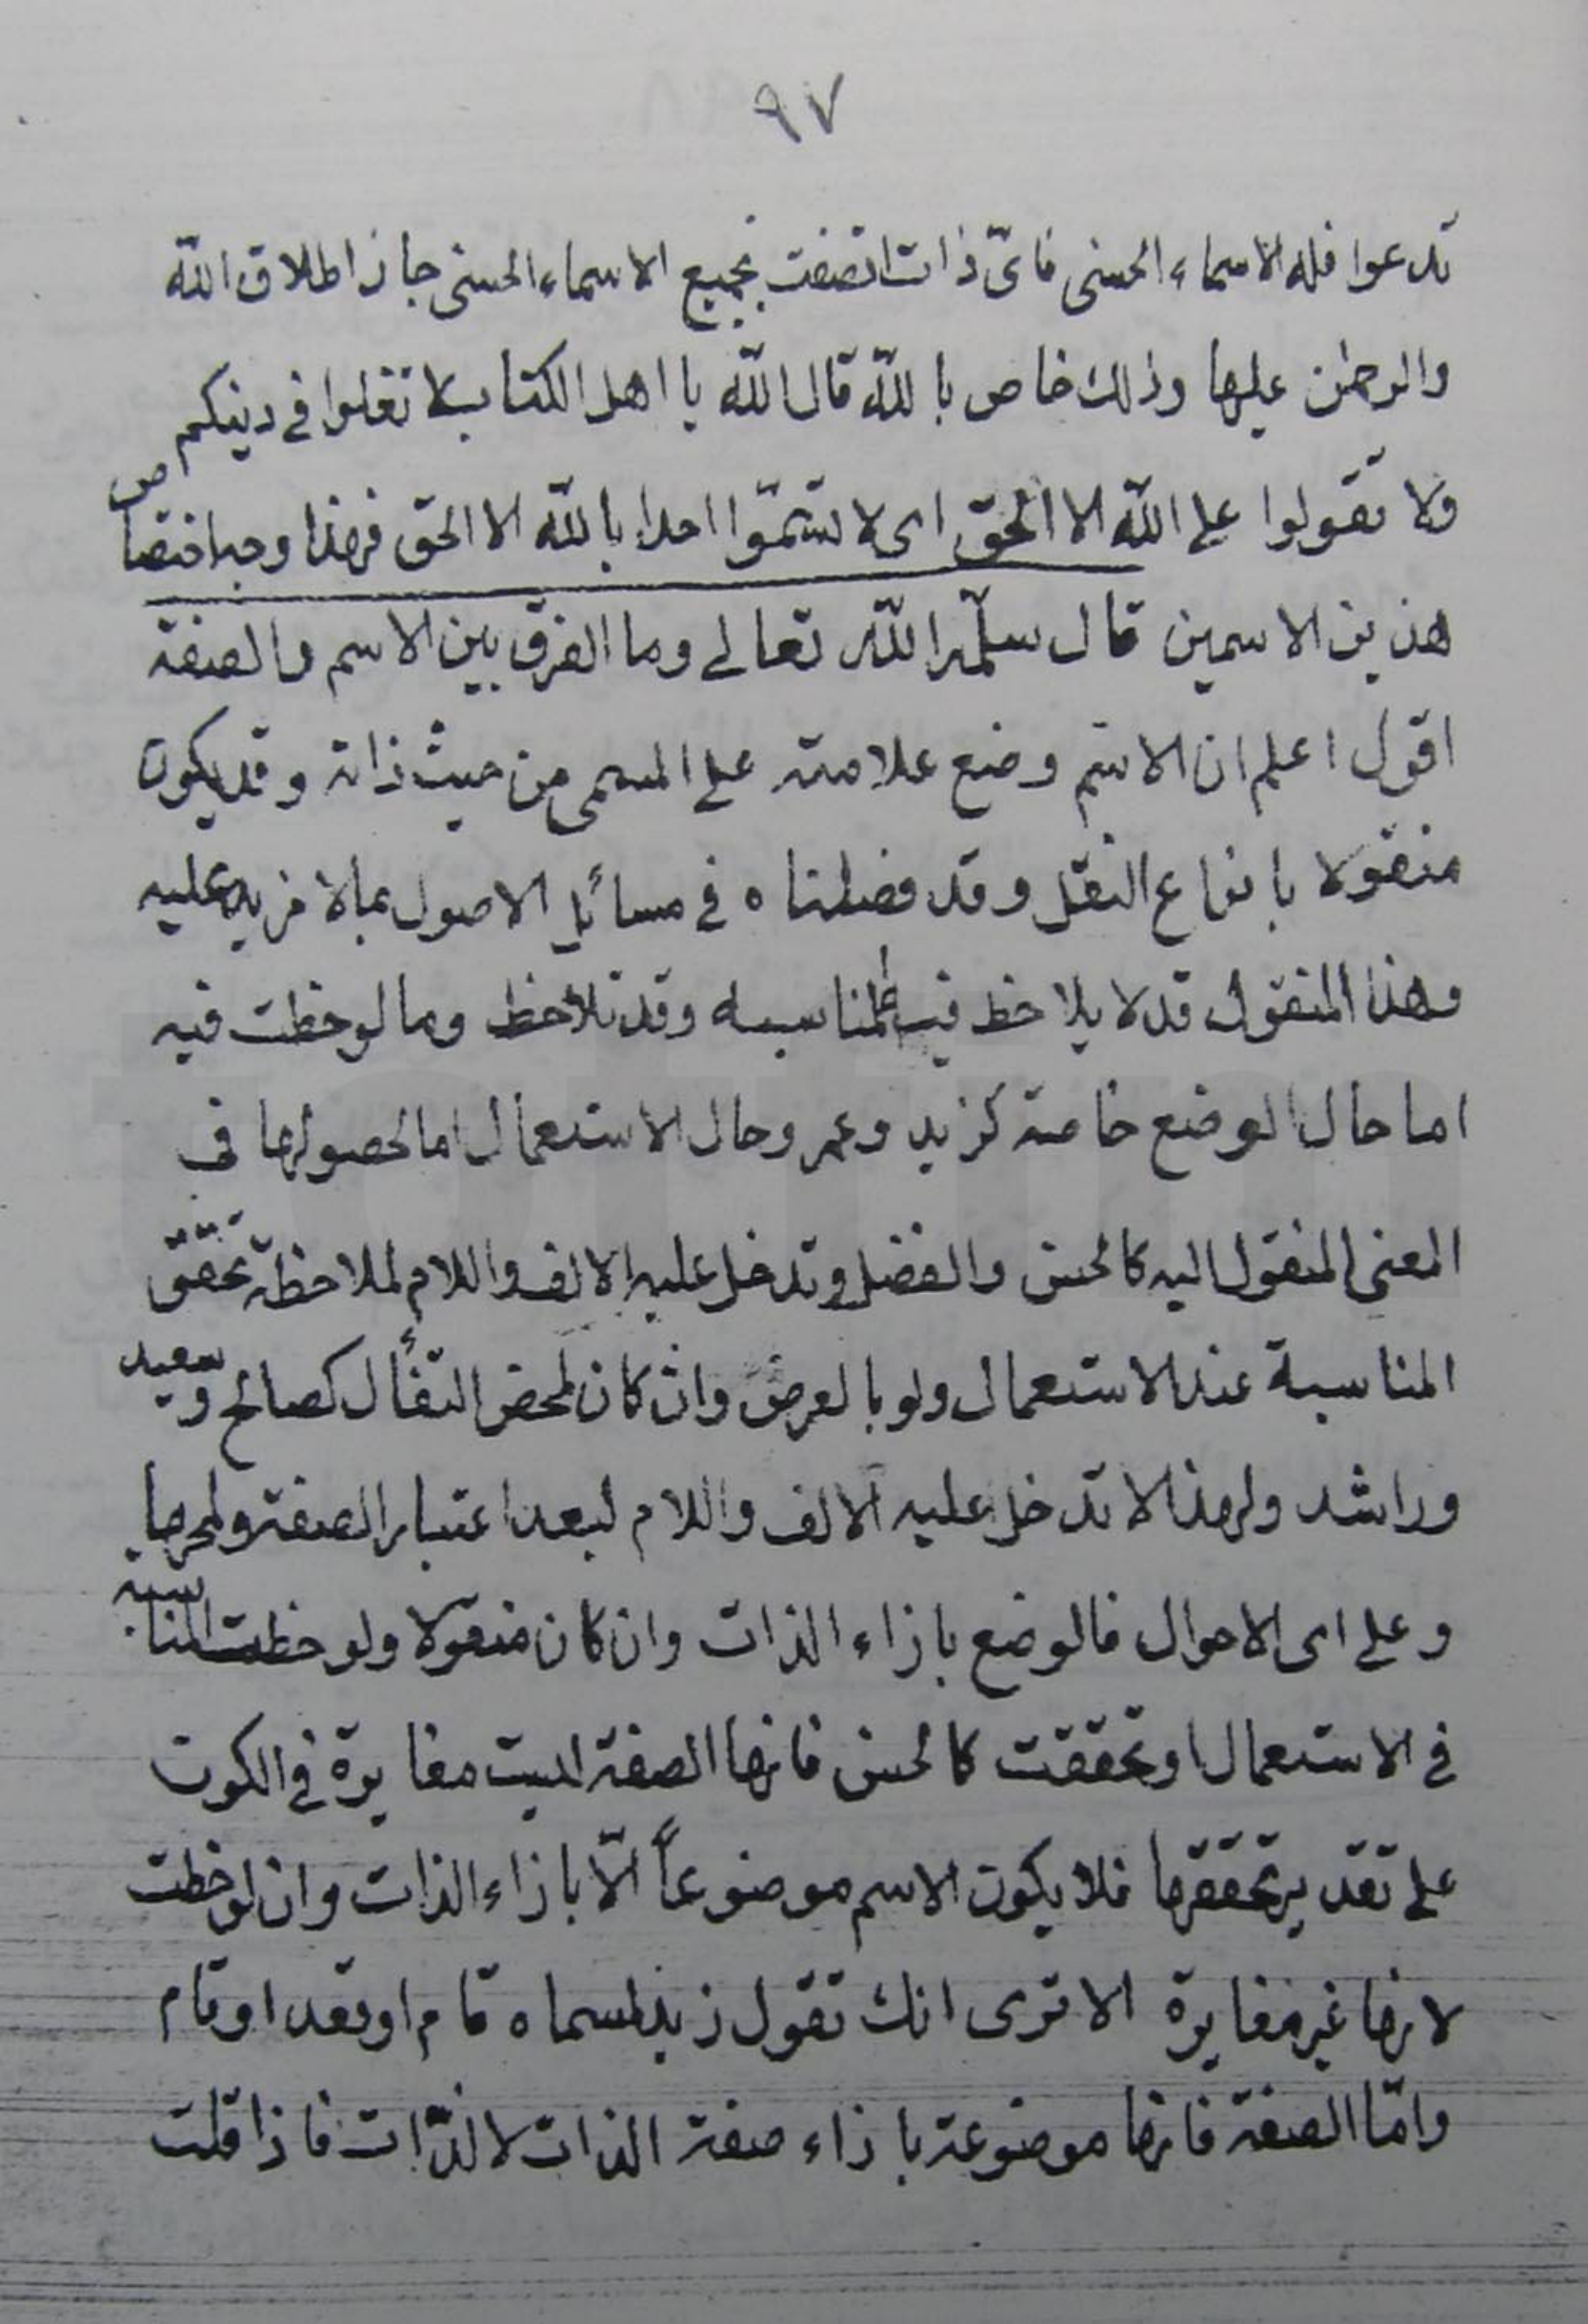 ٩٧
تدعوا فله الاسماء الحسنى فاىّ ذات اتصفت بجميع الاسماء الحسنى جاز اطلاق اللّه
والرحمٰن عليها وذلك خاص باللّه قال اللّه يا اهل الكتاب لا تغلوا فى دينكم
ولا تقولوا على اللّه الا الحق اى لا تسمّوا احدا باللّه الا الحق فلهذا وجب اختصاص
هذين الاسمين قال سلّمه اللّه تعالى وما الفرق بين الاسم والصفة
اقول اعلم ان الاسم وضع علامة على المسمى من حيث ذاته وقد يكون
منقولا بانواع النقل وقد فصلناه فى مسائل الاصول بما لا مزيد عليه
وهذا المنقول قد لا يلاحظ فيه المناسبة وقد تلاحظ وما لوحظت فيه
اما حال الوضع خاصة كزيد وعمر وحال الاستعمال اما لحصولها فى
المعنى المنقول اليه كالحسن والفضل وتدخل عليه الالف واللام لملاحظة تحقق
المناسبة عند الاستعمال ولو بالعرض وان كان لمحض التفأل كصالح وسعيد
وراشد ولهذا لا تدخل عليه الالف واللام لبعد اعتبار الصفة ولمحها
وعلى اى الاحوال فالوضع بازاء الذات وان كان منقولا ولوحظت المناسبة
فى الاستعمال او تحققت كالحسن فانها الصفة ليست مغايرة فى الكون
على تقدير تحققها فلا يكون الاسم موضوعاً الّا بازاء الذات وان لوحظت
لانها غير مغايرة الا ترى انك تقول زيد لمسماه قام او قعد او نام
وامّا الصفة فانها موضوعة بازاء صفة الذات لا الذّات فاذا قلت